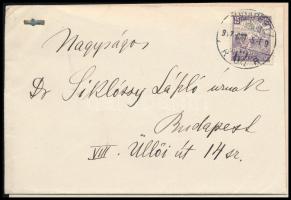 Nagyságos
Dr Siklóssy László urnak
Budapest
VIII. Üllői út 14 sz.